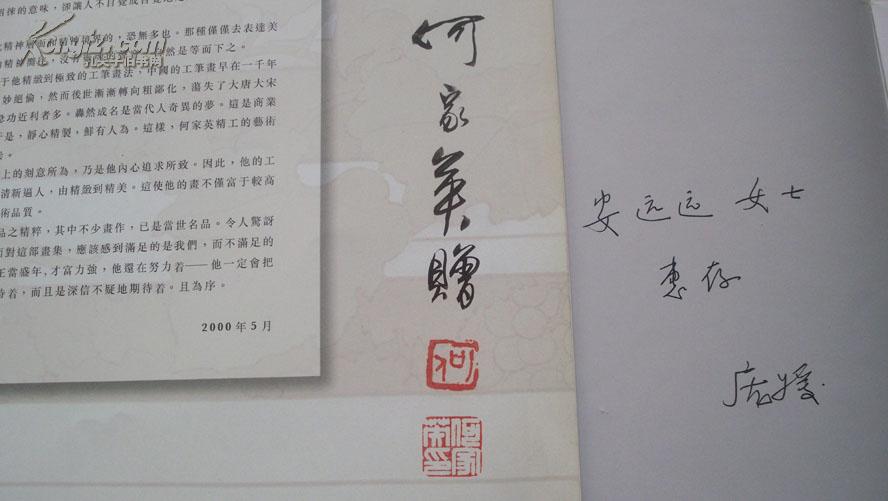 的意味，卻讓人不自覺或自覺地
精神層面和精神境界的，恐無多也。那種僅僅去表達美
於他精緻到極致的工筆畫法，中國的工筆畫早在一千年
妙絕倫，然而後世漸漸轉向粗鄙化，蕩失了大唐大宋
急功近利者多。轟然成名是當代人奇異的夢。這是商業
於是，靜心精製，鮮有人為。這樣，何家英精工的藝術
上的刻意所為，乃是他內心追求所致。因此，他的工
清新逼人，由精緻到精美。這使他的畫不僅富于較高
術品質。
品之精粹，其中不少畫作，已是當世名品。令人驚訝
面對這部畫集，應該感到滿足的是我們，而不滿足的
正當盛年，才富力強，他還在努力着——他一定會把
待着，而且是深信不疑地期待着。且為序。
2000年5月
孔夫子旧书网
何家英贈
何
何家英印
安远远 女士
惠存